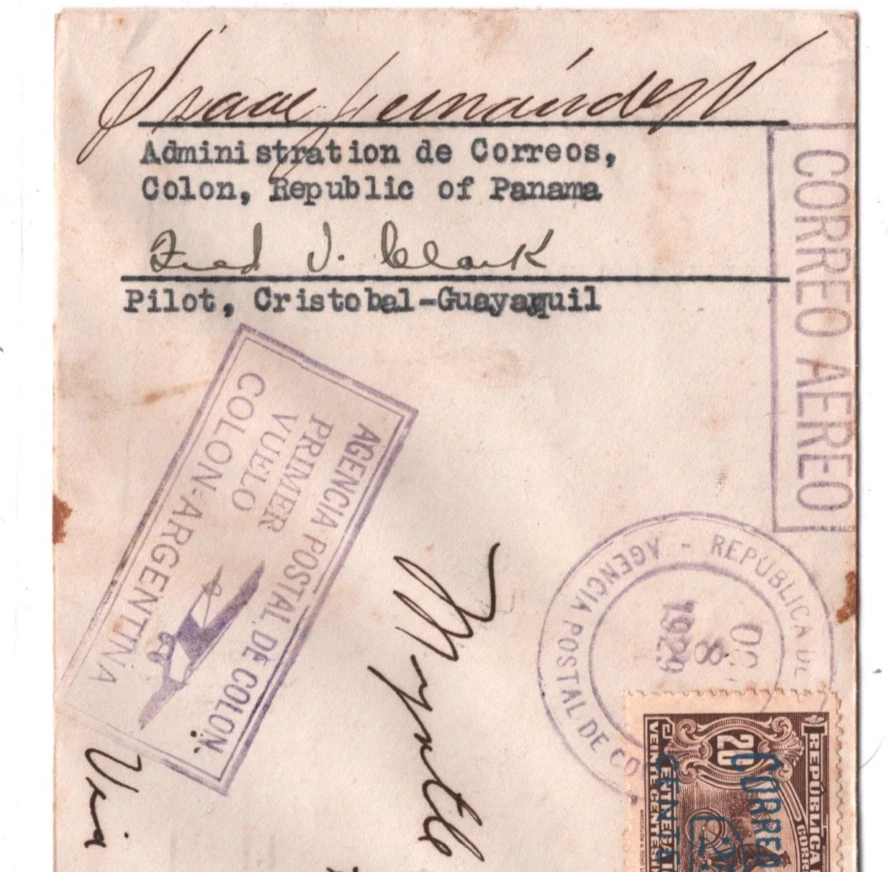 Isaac Fernández V
Administration de Correos,
Colon, Republic of Panama
Fred J. Clark
Pilot, Cristobal-Guayaquil
CORREO AEREO
AGENCIA POSTAL DE COLON.
PRIMER
VUELO
COLON-ARGENTINA
REPUBLICA DE
AGENCIA POSTAL DE CO
8
1929
Via
REPÚBLICA
CORR
20
CORREO